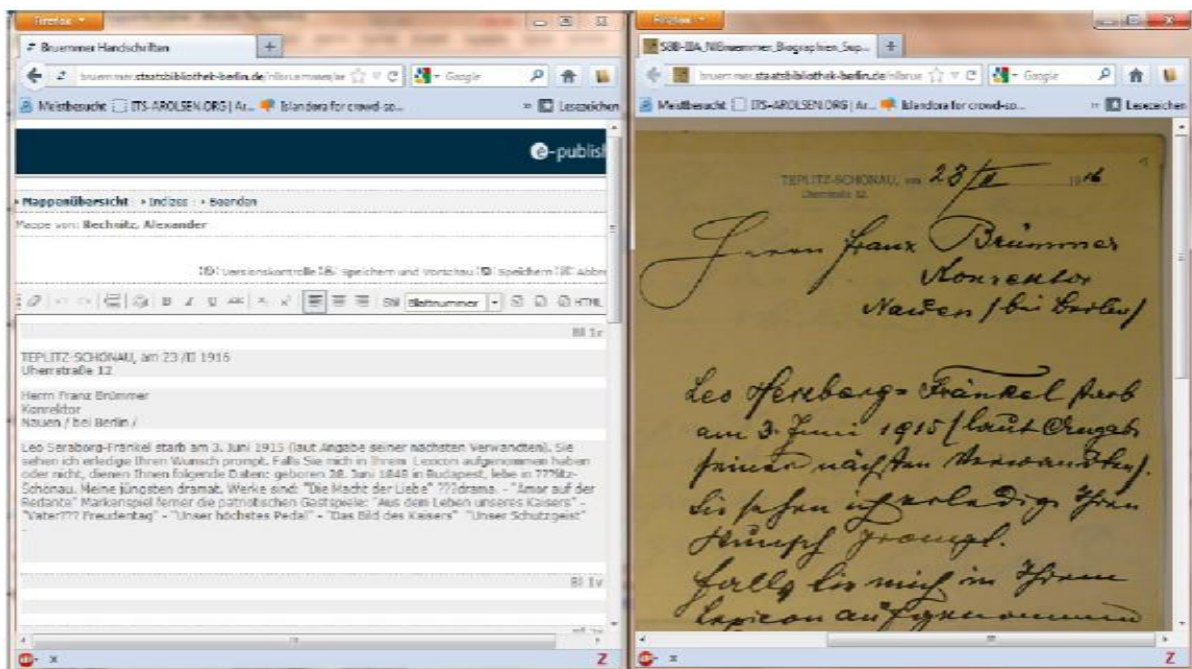 Firefox
Bruemmer Handschriften
bruemmer.staatsbibliothek-berlin.de/nlbruemmer/
Google
Meistbesucht ITS-AROLSEN.ORG | Ar... Islandora for crowd-so... Lesezeichen
e-publish
Mappenübersicht Indizes Beenden
Mappe von: Rechnitz, Alexander
Versionskontrolle Speichern und Vorschau Speichern Abbr
B I U ABC Stil Blattnummer HTML
Bl 1r
TEPLITZ-SCHÖNAU, am 23 /II 1916
Uherrstraße 12
Herrn Franz Brümmer
Konrektor
Nauen / bei Berlin /
Leo Seraborg-Fränkel starb am 3. Juni 1915 (laut Angabe seiner nächsten Verwandten). Sie
sehen ich erledige Ihren Wunsch prompt. Falls Sie mich in Ihrem Lexicon aufgenommen haben
oder nicht, dienen Ihnen folgende Daten: geboren 18. Juni 1848 in Budapest, lebe in ???litz-
Schönau. Meine jüngsten dramat. Werke sind: "Die Macht der Liebe" ???drama. - "Amor auf der
Redante" Markenspiel ferner die patriotischen Gastspiele: "Aus dem Leben unseres Kaisers"
"Vater??? Freudentag" - "Unser höchstes Pedal" - "Das Bild des Kaisers" "Unser Schutzgeist"
Bl 1v
Firefox
SBB-IIIA_NlBruemmer_Biographien_Sup...
bruemmer.staatsbibliothek-berlin.de/nlbrue
Google
Meistbesucht ITS-AROLSEN.ORG | Ar... Islandora for crowd-so... Lesezeichen
TEPLITZ-SCHÖNAU, am 23/II 1916
12
Herrn Franz Brümmer
Konrektor
Nauen / bei Berlin /
Leo Herzberg-Fränkel starb
am 3. Juni 1915 (laut Angabe
seiner nächsten Verwandten).
Sie sehen ich erledige Ihren
Wunsch prompt.
Falls Sie mich in Ihrem
Lexicon aufgenommen